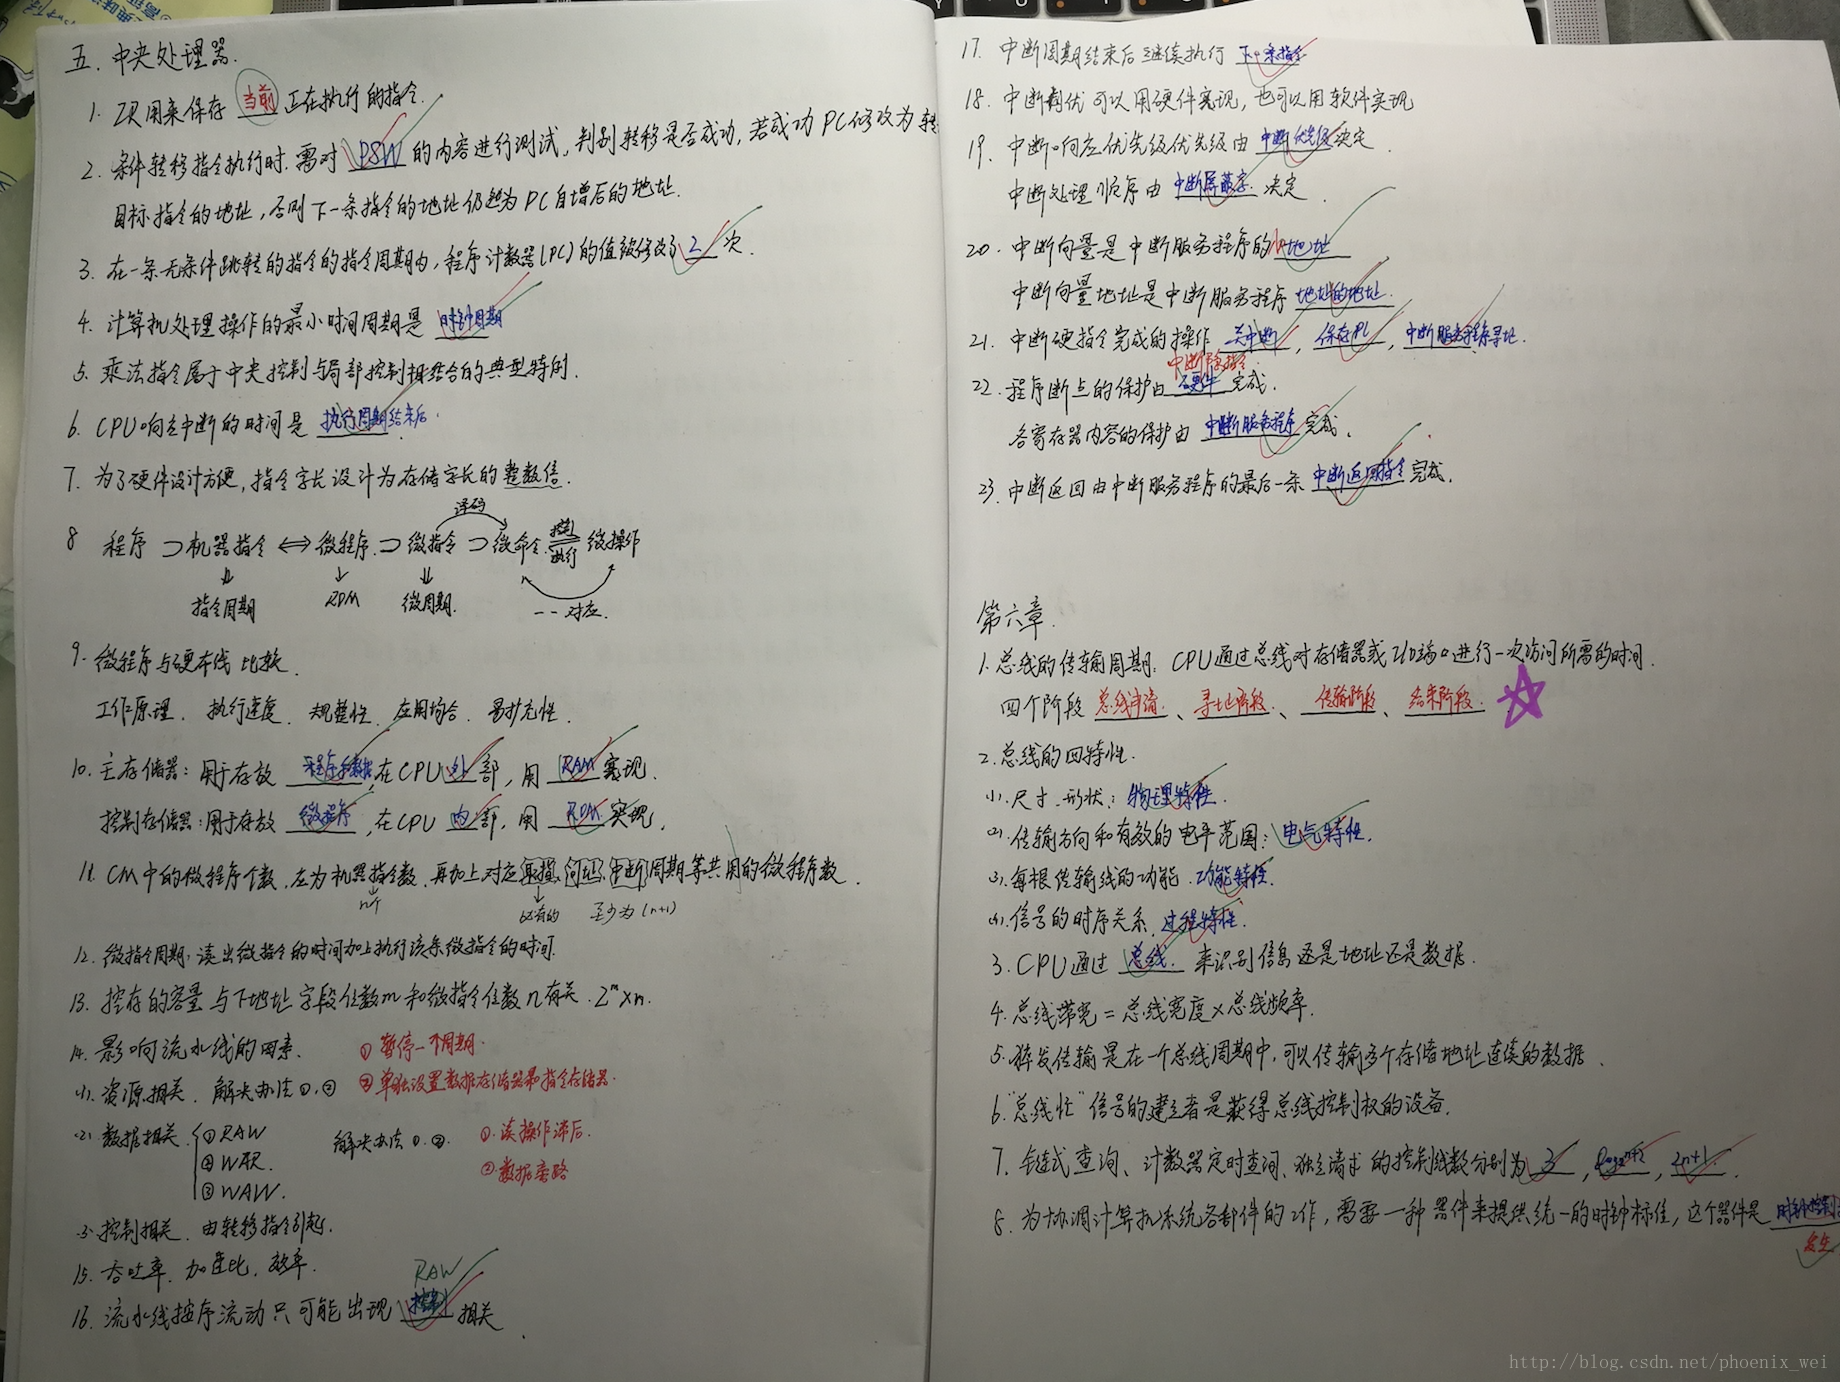 五. 中央处理器.
1. IR用来保存 当前 正在执行的指令.
2. 条件转移指令执行时. 需对 PSW 的内容进行测试, 判别转移是否成功, 若成功PC修改为转
目标指令的地址, 否则下一条指令的地址仍然为PC自增后的地址.
3. 在一条无条件跳转的指令的指令周期内, 程序计数器(PC)的值被修改了 2 次.
4. 计算机处理操作的最小时间周期是 时钟周期
5. 乘法指令属于中央控制与局部控制相结合的典型特例.
6. CPU响应中断的时间是 执行周期结束后.
7. 为了硬件设计方便, 指令字长设计为存储字长的整数倍.
译码
8 程序 ⊃ 机器指令 ⇔ 微程序 ⊃ 微指令 ⊃ 微命令 控制 执行 微操作
指令周期 ROM 微周期. 一一对应.
9. 微程序与硬布线比较.
工作原理. 执行速度. 规整性. 应用场合. 易扩充性.
10. 主存储器: 用于存放 程序和数据, 在CPU 外 部, 用 RAM 实现.
控制存储器: 用于存放 微程序, 在CPU 内 部, 用 ROM 实现.
11. CM中的微程序个数, 应为机器指令数, 再加上对应取指, 间址, 中断周期等共用的微程序数.
n个 必有的 至少为(n+1)
12. 微指令周期: 读出微指令的时间加上执行该条微指令的时间.
13. 控存的容量与下地址字段位数m和微指令位数n有关. 2ᵐ×n.
14. 影响流水线的因素. ① 暂停一个周期.
(1). 资源相关. 解决办法①,② ② 单独设置数据存储器和指令存储器.
(2) 数据相关. ① RAW 解决办法①.②. ①. 读操作滞后.
② WAR. ② 数据旁路
③ WAW.
(3) 控制相关. 由转移指令引起.
15. 吞吐率. 加速比. 效率.
RAW
16. 流水线按序流动只可能出现 相关.
17. 中断周期结束后继续执行 下一条指令
18. 中断判优可以用硬件实现, 也可以用软件实现
19. 中断响应优先级优先级由 中断优先级 决定.
中断处理顺序由 中断屏蔽字. 决定.
20. 中断向量是中断服务程序的入口地址
中断向量地址是中断服务程序 地址的地址.
21. 中断硬指令完成的操作 关中断, 保存PC, 中断服务程序寻址.
中断隐指令
22. 程序断点的保护由 硬件 完成.
各寄存器内容的保护由 中断服务程序 完成.
23. 中断返回由中断服务程序的最后一条 中断返回指令 完成.
第六章.
1. 总线的传输周期: CPU通过总线对存储器或I/O端口进行一次访问所需的时间.
四个阶段 总线申请、寻址阶段、传输阶段、结束阶段.
2. 总线的四特性.
(1). 尺寸. 形状: 物理特性.
(2). 传输方向和有效的电平范围: 电气特性.
(3). 每根传输线的功能. 功能特性.
(4). 信号的时序关系. 过程特性.
3. CPU通过 总线. 来识别信息还是地址还是数据.
4. 总线带宽 = 总线宽度 × 总线频率.
5. 猝发传输是在一个总线周期中, 可以传输多个存储地址连续的数据.
6. "总线忙"信号的建立者是获得总线控制权的设备.
7. 链式查询、计数器定时查询、独立请求的控制线数分别为 3, log₂n+2, 2n+1.
8. 为协调计算机系统各部件的工作, 需要一种器件来提供统一的时钟标准, 这个器件是 时钟控制
发生
http://blog.csdn.net/phoenix_wei